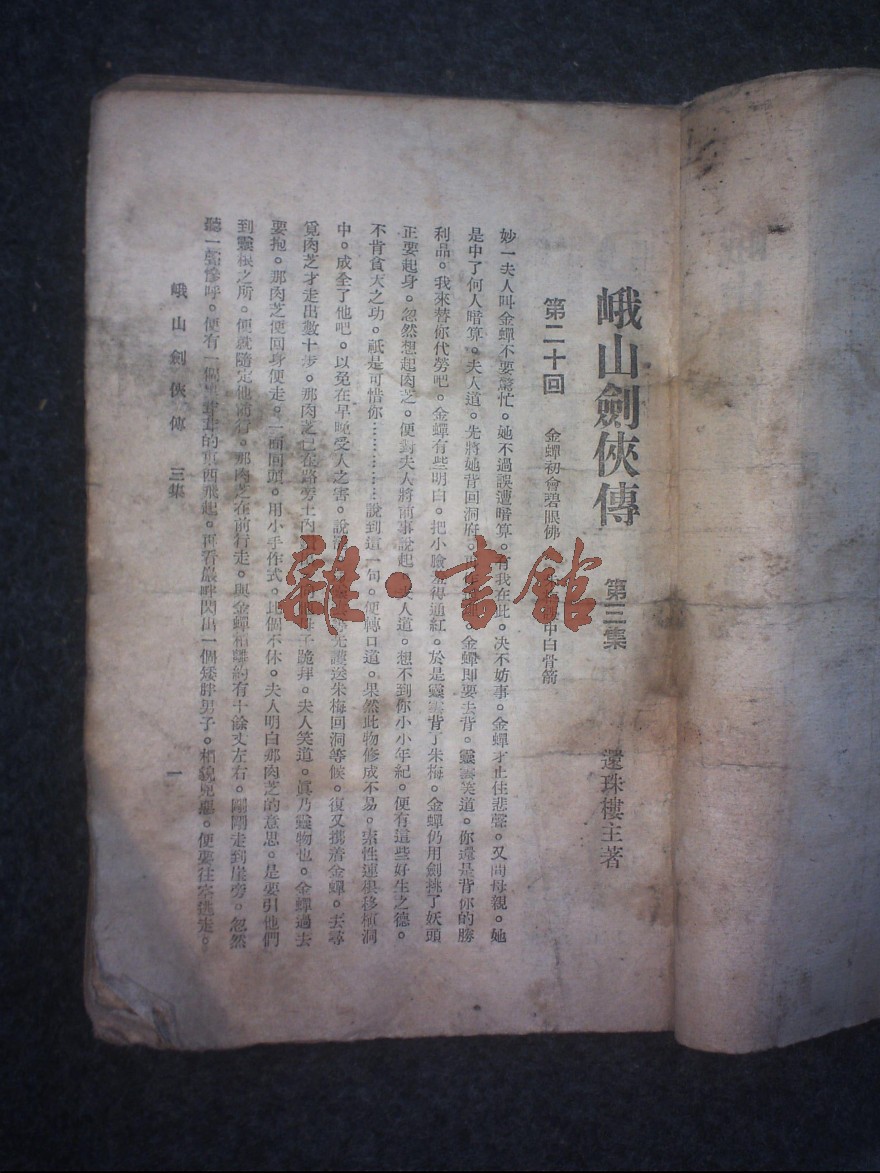 峨山劍俠傳 第三集 還珠樓主著
第二十回 金蟬初會碧眼佛 中白骨箭
妙一夫人叫金蟬不要驚忙。她不過誤遭暗算。有我在此。决不妨事。金蟬才止住悲聲。又問母親。她
是中了何人暗算。夫人道。先將她背回洞府。金蟬即要去背。靈雲笑道。你還是背你的勝
利品。我來替你代勞吧。金蟬有些明白。把小臉得通紅。於是靈雲背了朱梅。金蟬仍用劍挑了妖頭
正要起身。忽然想起肉芝。便對夫人將前事說起。夫人道。想不到你小小年紀。便有這些好生之德。
不肯貪天之功。祇是可惜你…………說到這一句。便轉口道。果然此物修成不易。索性連根移植洞
中。成全了他吧。以免在早晚受人之害。說 先護送朱梅回洞等候。復又攜着金蟬。去尋
覓肉芝才走出數十步。那肉芝已在路旁土內 母子跪拜。夫人笑道。眞乃靈物也。金蟬過去
要抱。那肉芝便回身便走。一面回頭。用小手作式。比個不休。夫人明白那肉芝的意思。是要引他們
到靈根之所。便就隨定他前行。那肉芝在前行走。與金蟬相離約有十餘丈左右。剛剛走到崖旁。忽然
聽一聲慘呼。便有一個 的東西飛起。再看巖畔閃出一個矮胖男子。相貌兇惡。便要往空逃走。
峨山劍俠傳 三集 一
雜·書館